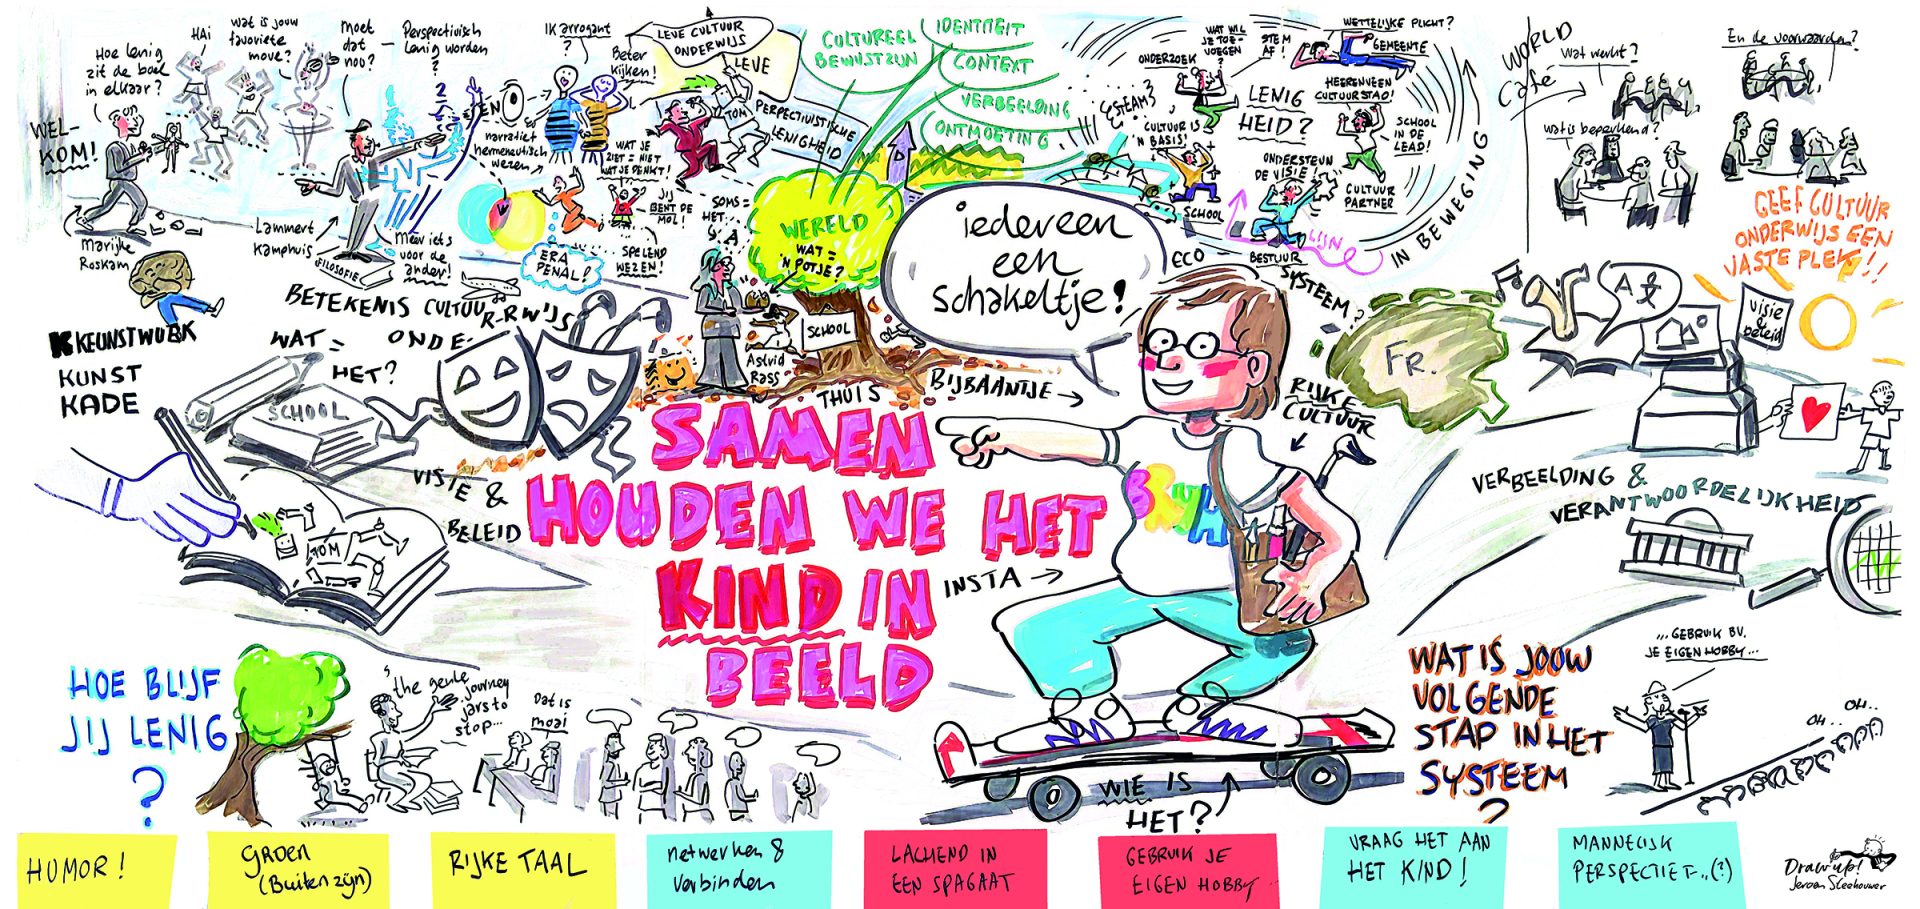 WEL-
KOM!
Hoe lenig
zit de boel
in elkaar?
HAi
wat is jouw
favoriete
move?
moet
dat
nou?
Perspectivisch
lenig worden
?
Marijke
Roskam
Lammert
Kamphuis
FILOSOFIE
Meer iets
voor de
ander!
narratief
hermeneutisch
wezen
IK arrogant
?
Beter
kijken!
ERA
PENAL!
WAT JE
ZIET = NIET
WAT JE DENKT!
JIJ
BENT DE
MOL!
SPELEND
WEZEN!
LEVE CULTUUR
ONDERWIJS
LEVE
TOM
PERSPECTIVISTISCHE
LENIGHEID
SOMS =
HET
CULTUREEL
BEWUSTZIJN
IDENTITEIT
CONTEXT
VERBEELDING
ONTMOETING
WERELD
WAT =
'N POTJE?
SCHOOL
Astrid
Rass
THUIS
STEAM?
ONDERZOEK
WAT WIL
JE TOE-
VOEGEN
STEM
AF!
WETTELIJKE PLICHT?
GEMEENTE
HEERENVEEN
CULTUURSTAD!
LENIG
HEID?
CULTUUR IS
'N BASIS!
SCHOOL
IN DE
LEAD!
ONDERSTEUN
DE VISIE!
CULTUUR
PARTNER
SCHOOL
LIJN
BESTUUR
ECO
SYSTEEM?
IN BEWEGING
WORLD
Cafe
wat werkt?
wat is beperkend?
En de voorwaarden?
GEEF CULTUUR
ONDERWIJS EEN
VASTE PLEK!!
KEUNSTWURK
KUNST
KADE
BETEKENIS CULTUUR-R-RWIJS
WAT =
HET?
ONDE-
SCHOOL
VISIE &
BELEID
TOM
iedereen
een
schakeltje!
BIJBAANTJE →
RIJKE
CULTUUR
FR.
visie
&
beleid
SAMEN
HOUDEN WE HET
KIND IN
BEELD
BRUH
INSTA →
VERBEELDING &
VERANTWOORDELIJKHEID
HOE BLIJF
JIJ LENIG
?
the gentle
journey
jars to
stop...
Dat is
mooi
WIE IS
HET?
WAT IS JOUW
VOLGENDE
STAP IN HET
SYSTEEM
?
... GEBRUIK BV.
JE EIGEN HOBBY...
OH..
OH..
HUMOR!
GROEN
(Buiten zijn)
RIJKE TAAL
netwerken &
verbinden
LACHEND IN
EEN SPAGAAT
GEBRUIK JE
EIGEN HOBBY
VRAAG HET AAN
HET KIND!
MANNELIJK
PERSPECTIEF..(?)
Draw up!
Jeroen Steehouwer